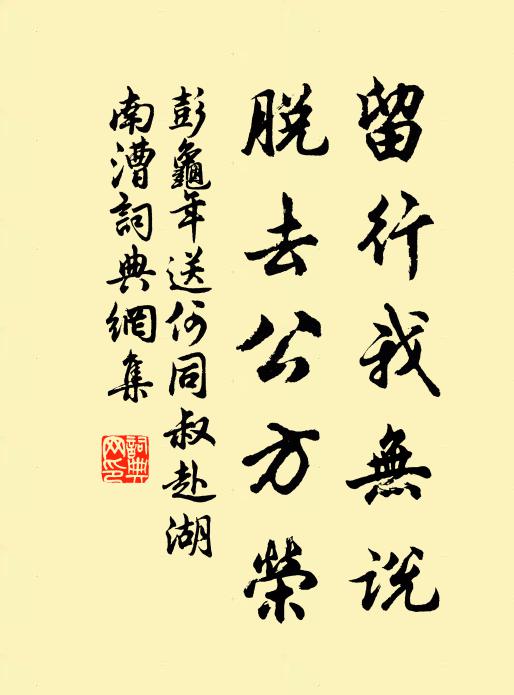 留行我無說
脫去公方榮
彭龜年送何同叔赴湖
南漕詞典網集
詞典網印